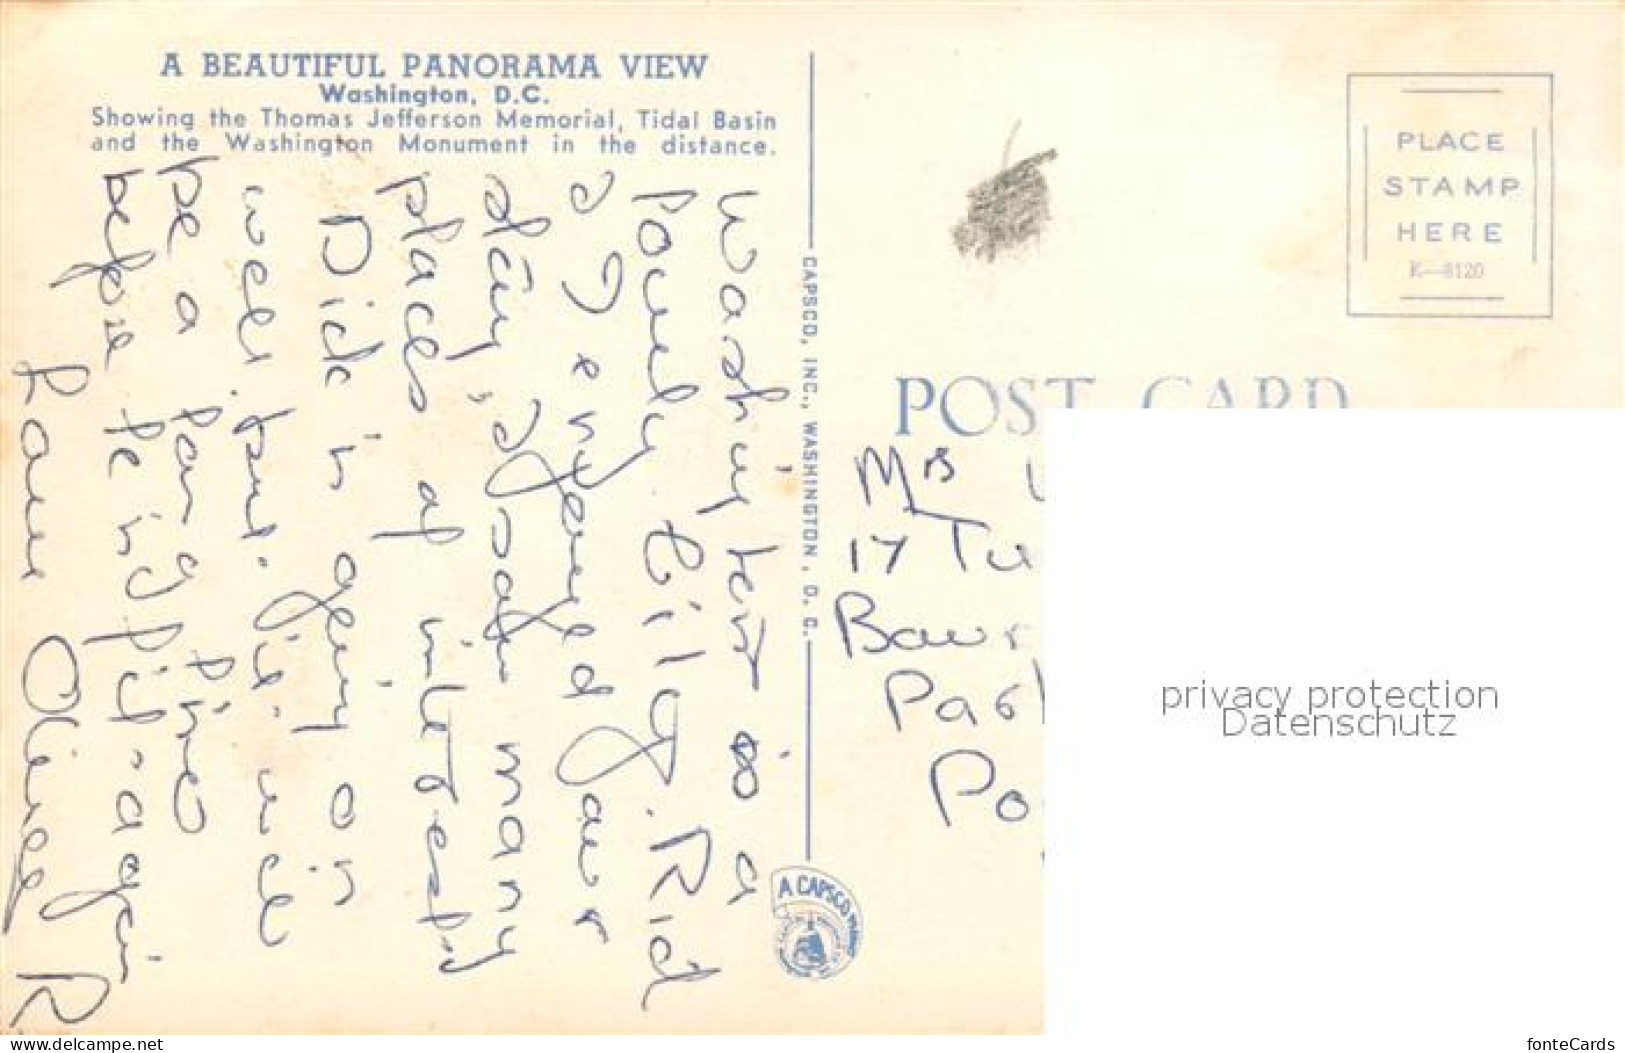 A BEAUTIFUL PANORAMA VIEW
Washington, D.C.
Showing the Thomas Jefferson Memorial, Tidal Basin
and the Washington Monument in the distance.
Washington is a
lovely City. Rich
& I enjoyed our
stay, & saw many
places of interest
Dick is going on
well but. it will
be a long time
before he is fit again
Love Olive R
CAPSCO, INC., WASHINGTON, D. C.
A CAPSCO
PLACE
STAMP
HERE
K—8120
POST CARD
Mrs
17 Tu
Bour
Pa
Po
privacy protection
Datenschutz
www.delcampe.net
fonteCards